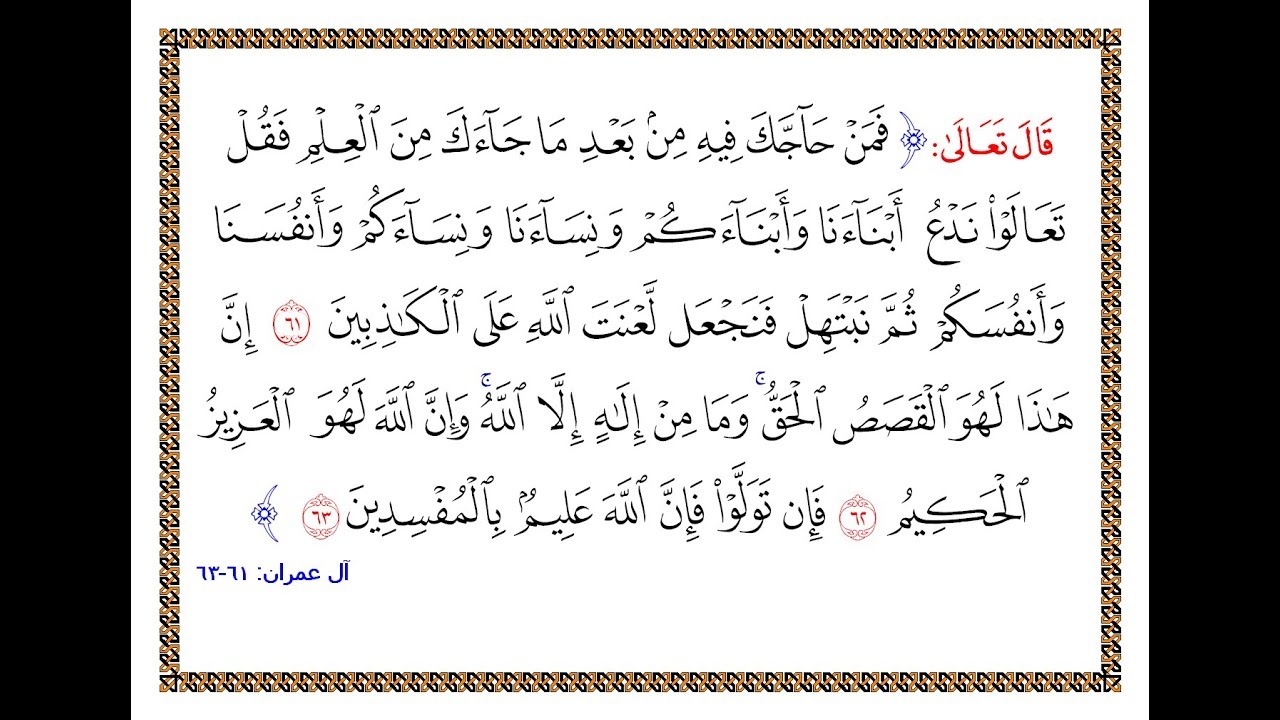 قَالَ تَعَالَىٰ: ﴿ فَمَنْ حَآجَّكَ فِيهِ مِنۢ بَعْدِ مَا جَآءَكَ مِنَ ٱلْعِلْمِ فَقُلْ
تَعَالَوْا۟ نَدْعُ أَبْنَآءَنَا وَأَبْنَآءَكُمْ وَنِسَآءَنَا وَنِسَآءَكُمْ وَأَنفُسَنَا
وَأَنفُسَكُمْ ثُمَّ نَبْتَهِلْ فَنَجْعَل لَّعْنَتَ ٱللَّهِ عَلَى ٱلْكَـٰذِبِينَ ٦١ إِنَّ
هَـٰذَا لَهُوَ ٱلْقَصَصُ ٱلْحَقُّ ۚ وَمَا مِنْ إِلَـٰهٍ إِلَّا ٱللَّهُ ۚ وَإِنَّ ٱللَّهَ لَهُوَ ٱلْعَزِيزُ
ٱلْحَكِيمُ ٦٢ فَإِن تَوَلَّوْا۟ فَإِنَّ ٱللَّهَ عَلِيمٌۢ بِٱلْمُفْسِدِينَ ٦٣ ﴾
آل عمران: ٦١-٦٣